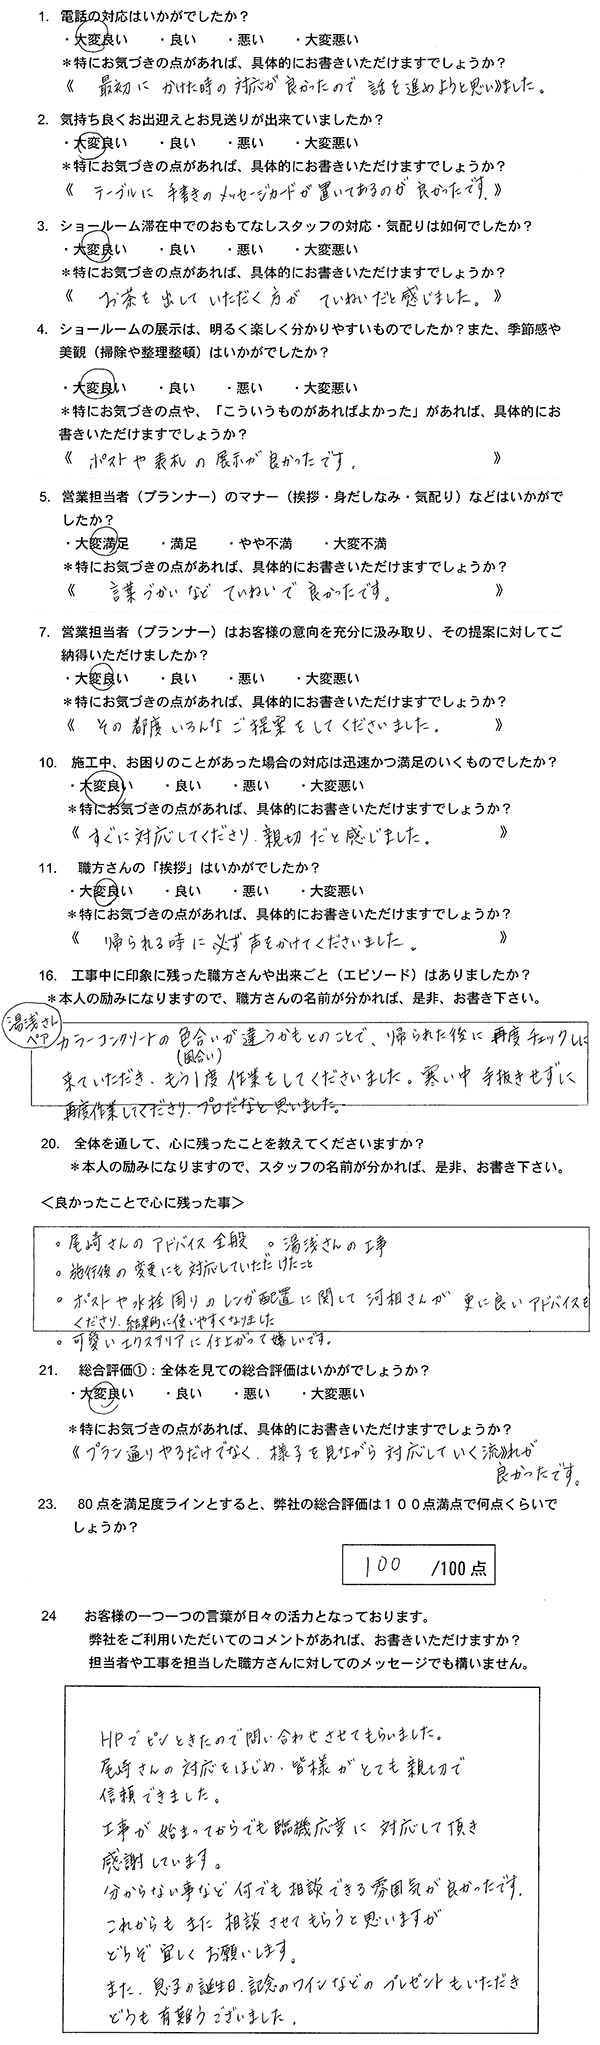 1. 電話の対応はいかがでしたか？
・大変良い ・良い ・悪い ・大変悪い
＊特にお気づきの点があれば、具体的にお書きいただけますでしょうか？
《 最初に かけた時の 対応が 良かったので 話を進めようと思い》ました。
2. 気持ち良くお出迎えとお見送りが出来ていましたか？
・大変良い ・良い ・悪い ・大変悪い
＊特にお気づきの点があれば、具体的にお書きいただけますでしょうか？
《 テーブルに 手書きの メッセージカードが 置いてあるのが 良かったです。》
3. ショールーム滞在中でのおもてなしスタッフの対応・気配りは如何でしたか？
・大変良い ・良い ・悪い ・大変悪い
＊特にお気づきの点があれば、具体的にお書きいただけますでしょうか？
《 お茶を 出して いただく 方が ていねいだと感じました。》
4. ショールームの展示は、明るく楽しく分かりやすいものでしたか？また、季節感や
美観（掃除や整理整頓）はいかがでしたか？
・大変良い ・良い ・悪い ・大変悪い
＊特にお気づきの点や、「こういうものがあればよかった」があれば、具体的にお
書きいただけますでしょうか？
《 ポストや 表札の 展示が 良かったです。 》
5. 営業担当者（プランナー）のマナー（挨拶・身だしなみ・気配り）などはいかがで
したか？
・大変満足 ・満足 ・やや不満 ・大変不満
＊特にお気づきの点があれば、具体的にお書きいただけますでしょうか？
《 言葉づかいなど ていねいで 良かったです。 》
7. 営業担当者（プランナー）はお客様の意向を充分に汲み取り、その提案に対してご
納得いただけましたか？
・大変良い ・良い ・悪い ・大変悪い
＊特にお気づきの点があれば、具体的にお書きいただけますでしょうか？
《 その 都度 いろんな ご提案をしてくださいました。 》
10. 施工中、お困りのことがあった場合の対応は迅速かつ満足のいくものでしたか？
・大変良い ・良い ・悪い ・大変悪い
＊特にお気づきの点があれば、具体的にお書きいただけますでしょうか？
《 すぐに 対応してくださり、親切だと 感じました。 》
11. 職方さんの「挨拶」はいかがでしたか？
・大変良い ・良い ・悪い ・大変悪い
＊特にお気づきの点があれば、具体的にお書きいただけますでしょうか？
《 帰られる時に 必ず 声をかけてくださいました。 》
16. 工事中に印象に残った職方さんや出来ごと（エピソード）はありましたか？
＊本人の励みになりますので、職方さんの名前が分かれば、是非、お書き下さい。
湯浅さん
ペア
カラーコンクリートの 色合いが 違うかもとのことで、帰られた後に 再度 チェックしに
(風合い)
来ていただき、もう1度 作業をしてくださいました。寒い中 手抜きせずに
再度作業してくださり、プロだなと 思いました。
20. 全体を通して、心に残ったことを教えてくださいますか？
＊本人の励みになりますので、スタッフの名前が分かれば、是非、お書き下さい。
＜良かったことで心に残った事＞
。尾崎さんの アドバイス全般 。湯浅さんの工事
。施行後の 変更にも 対応していただけたこと
。ポストや水栓周りの レンガ配置に 関して 河相さんが 更に良い アドバイスを
くださり、結果的に使いやすくなりました
。可愛いエクステリアに 仕上がって 嬉しいです。
21. 総合評価①：全体を見ての総合評価はいかがでしょうか？
・大変良い ・良い ・悪い ・大変悪い
＊特にお気づきの点があれば、具体的にお書きいただけますでしょうか？
《プラン通りやるだけでなく、様子を見ながら 対応していく 流》れが
良かったです。
23. 80点を満足度ラインとすると、弊社の総合評価は１００点満点で何点くらいで
しょうか？
100 /100点
24 お客様の一つ一つの言葉が日々の活力となっております。
弊社をご利用いただいてのコメントがあれば、お書きいただけますか？
担当者や工事を担当した職方さんに対してのメッセージでも構いません。
HPで ピンときたので 問い合わせ させてもらいました。
尾崎さんの 対応をはじめ、皆様が とても 親切で
信頼できました。
工事が 始まってからでも 臨機応変に 対応して頂き
感謝しています。
分からない事など 何でも 相談できる 雰囲気が 良かったです。
これからも また 相談させてもらうと思いますが
どうぞ 宜しく お願いします。
また、息子の誕生日、記念のワインなどの プレゼントもいただき
どうも 有難うございました。